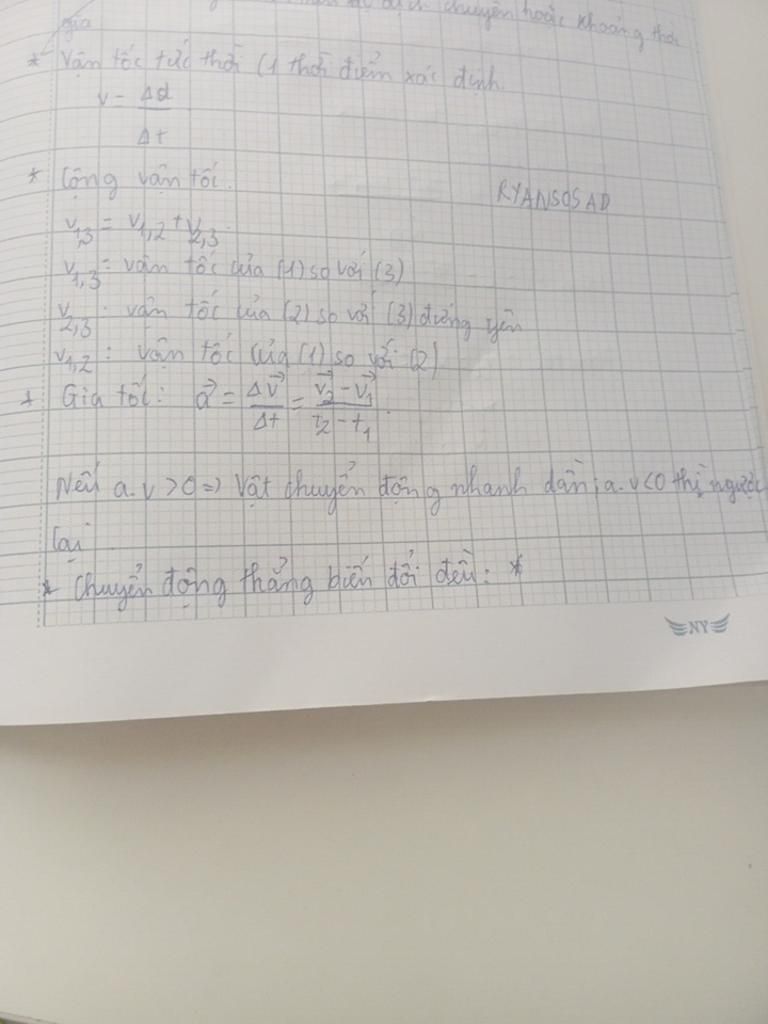 chuyển hoặc khoảng thời
gia
* Vận tốc tức thời (1 thời điểm xác định.
v = Δd
Δt
* Cộng vận tốc.
RYANSOSAD
v1,3 = v1,2 + v2,3.
v1,3: vận tốc của (1) so với (3)
v2,3: vận tốc của (2) so với (3) đứng yên
v1,2: vận tốc của (1) so với (2)
* Gia tốc: a⃗ = Δv⃗/Δt = (v⃗2 - v⃗1)/(t2 - t1).
Nếu a.v > 0 => Vật chuyển động nhanh dần; a.v < 0 thì ngược
lại
* Chuyển động thẳng biến đổi đều: *
NY